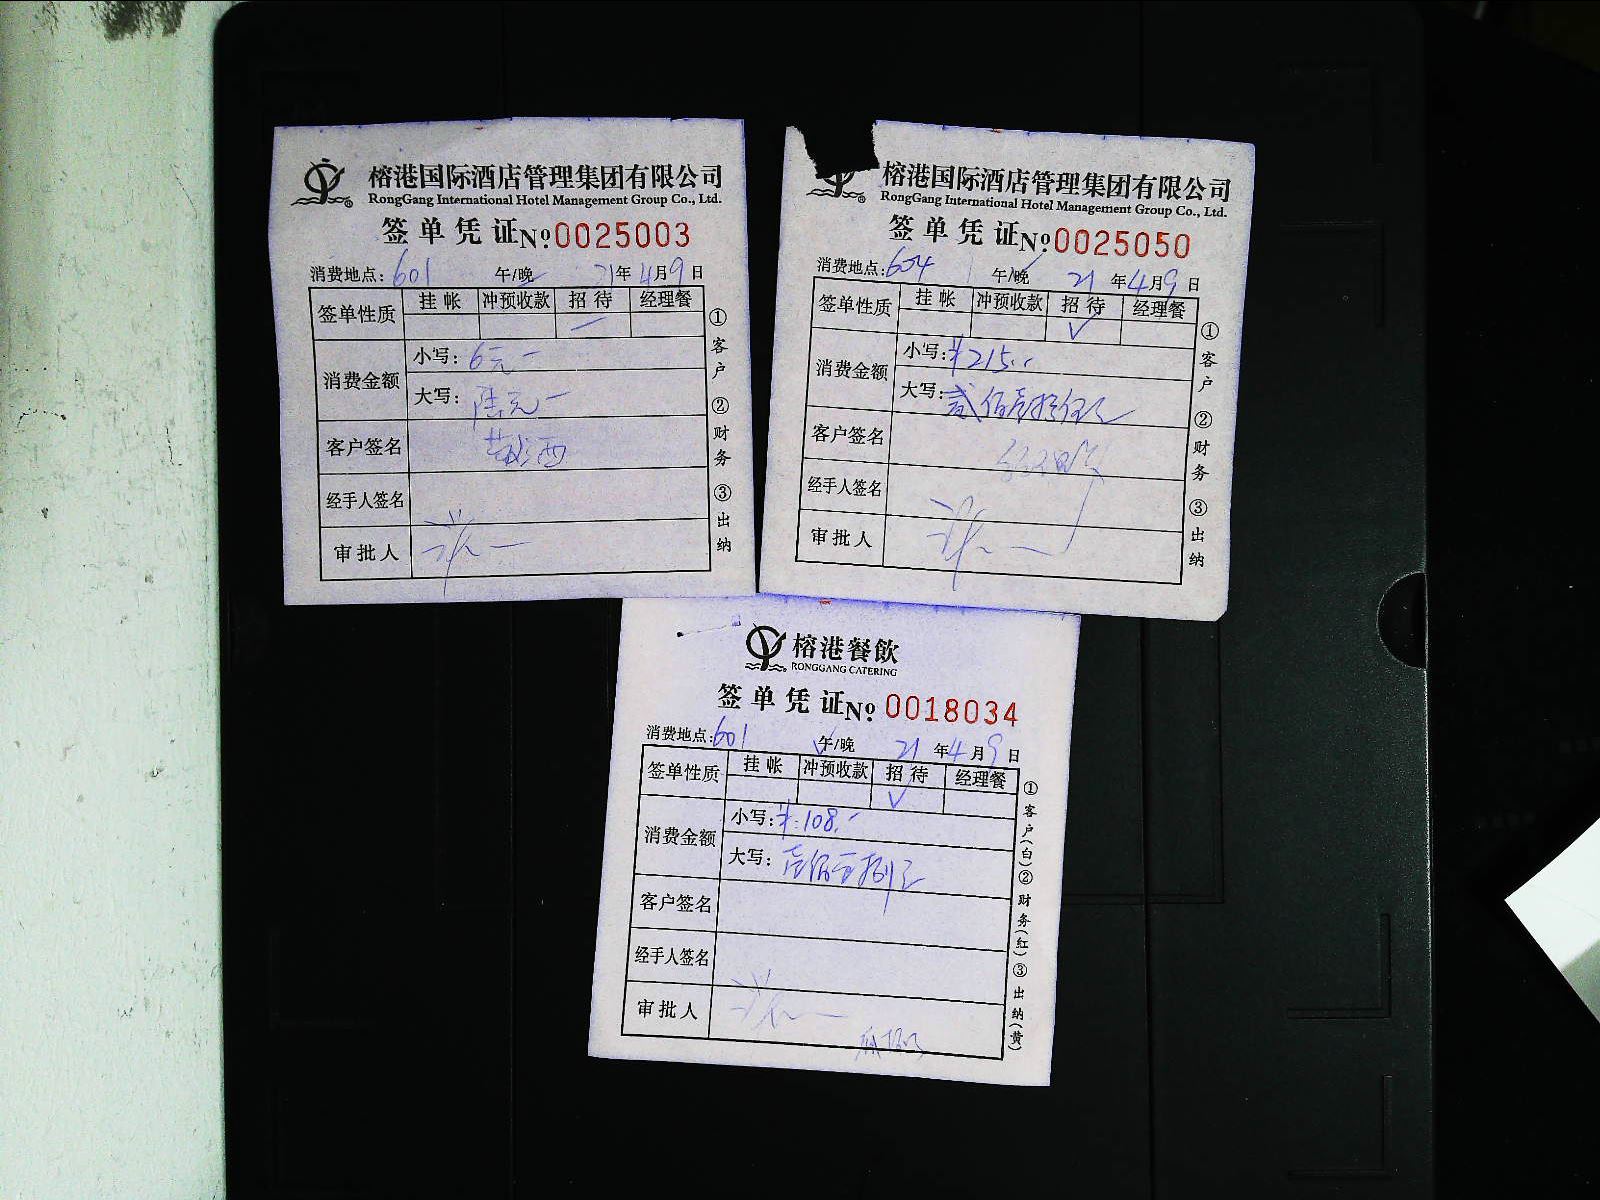 榕港国际酒店管理集团有限公司
RongGang International Hotel Management Group Co., Ltd.
签单凭证No.0025003
消费地点:601 午/晚 21年4月9日
签单性质 挂帐 冲预收款 招待 经理餐
消费金额 小写:6元一
大写:陆元一
客户签名
经手人签名
审批人
①客户 ②财务 ③出纳
榕港国际酒店管理集团有限公司
RongGang International Hotel Management Group Co., Ltd.
签单凭证No.0025050
消费地点:604 午/晚 21年4月9日
签单性质 挂帐 冲预收款 招待 经理餐
✓
消费金额 小写:¥215.-
大写:贰佰壹拾伍元
客户签名
经手人签名
审批人
①客户 ②财务 ③出纳
榕港餐飲
RONGGANG CATERING
签单凭证No.0018034
消费地点:601 午/晚 21年4月9日
签单性质 挂帐 冲预收款 招待 经理餐
✓
消费金额 小写:¥108.-
大写:壹佰零捌元
客户签名
经手人签名
审批人
①客户(白)②财务(红)③出纳(黄)